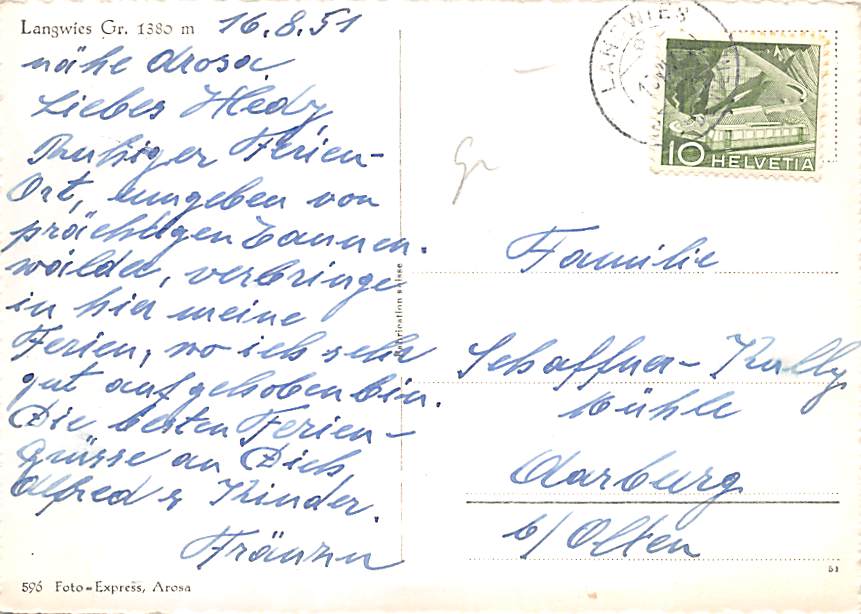 Langwies Gr. 1380 m
16.8.51
nähe Arosa
Liebes Hedy
Ruhiger Ferien-
Ort, umgeben von
prächtigen Tannen-
wälder, verbringe
in hier meine
Ferien, wo ich sehr
gut aufgehoben bin.
Die besten Ferien-
Grüsse an Dich
Alfred & Kinder.
Fabrication suisse
LANGWIES
10 HELVETIA
Gr
Familie
Schaffner-Kully
Mühle
Aarburg
b/ Olten
51
596 Foto-Express, Arosa